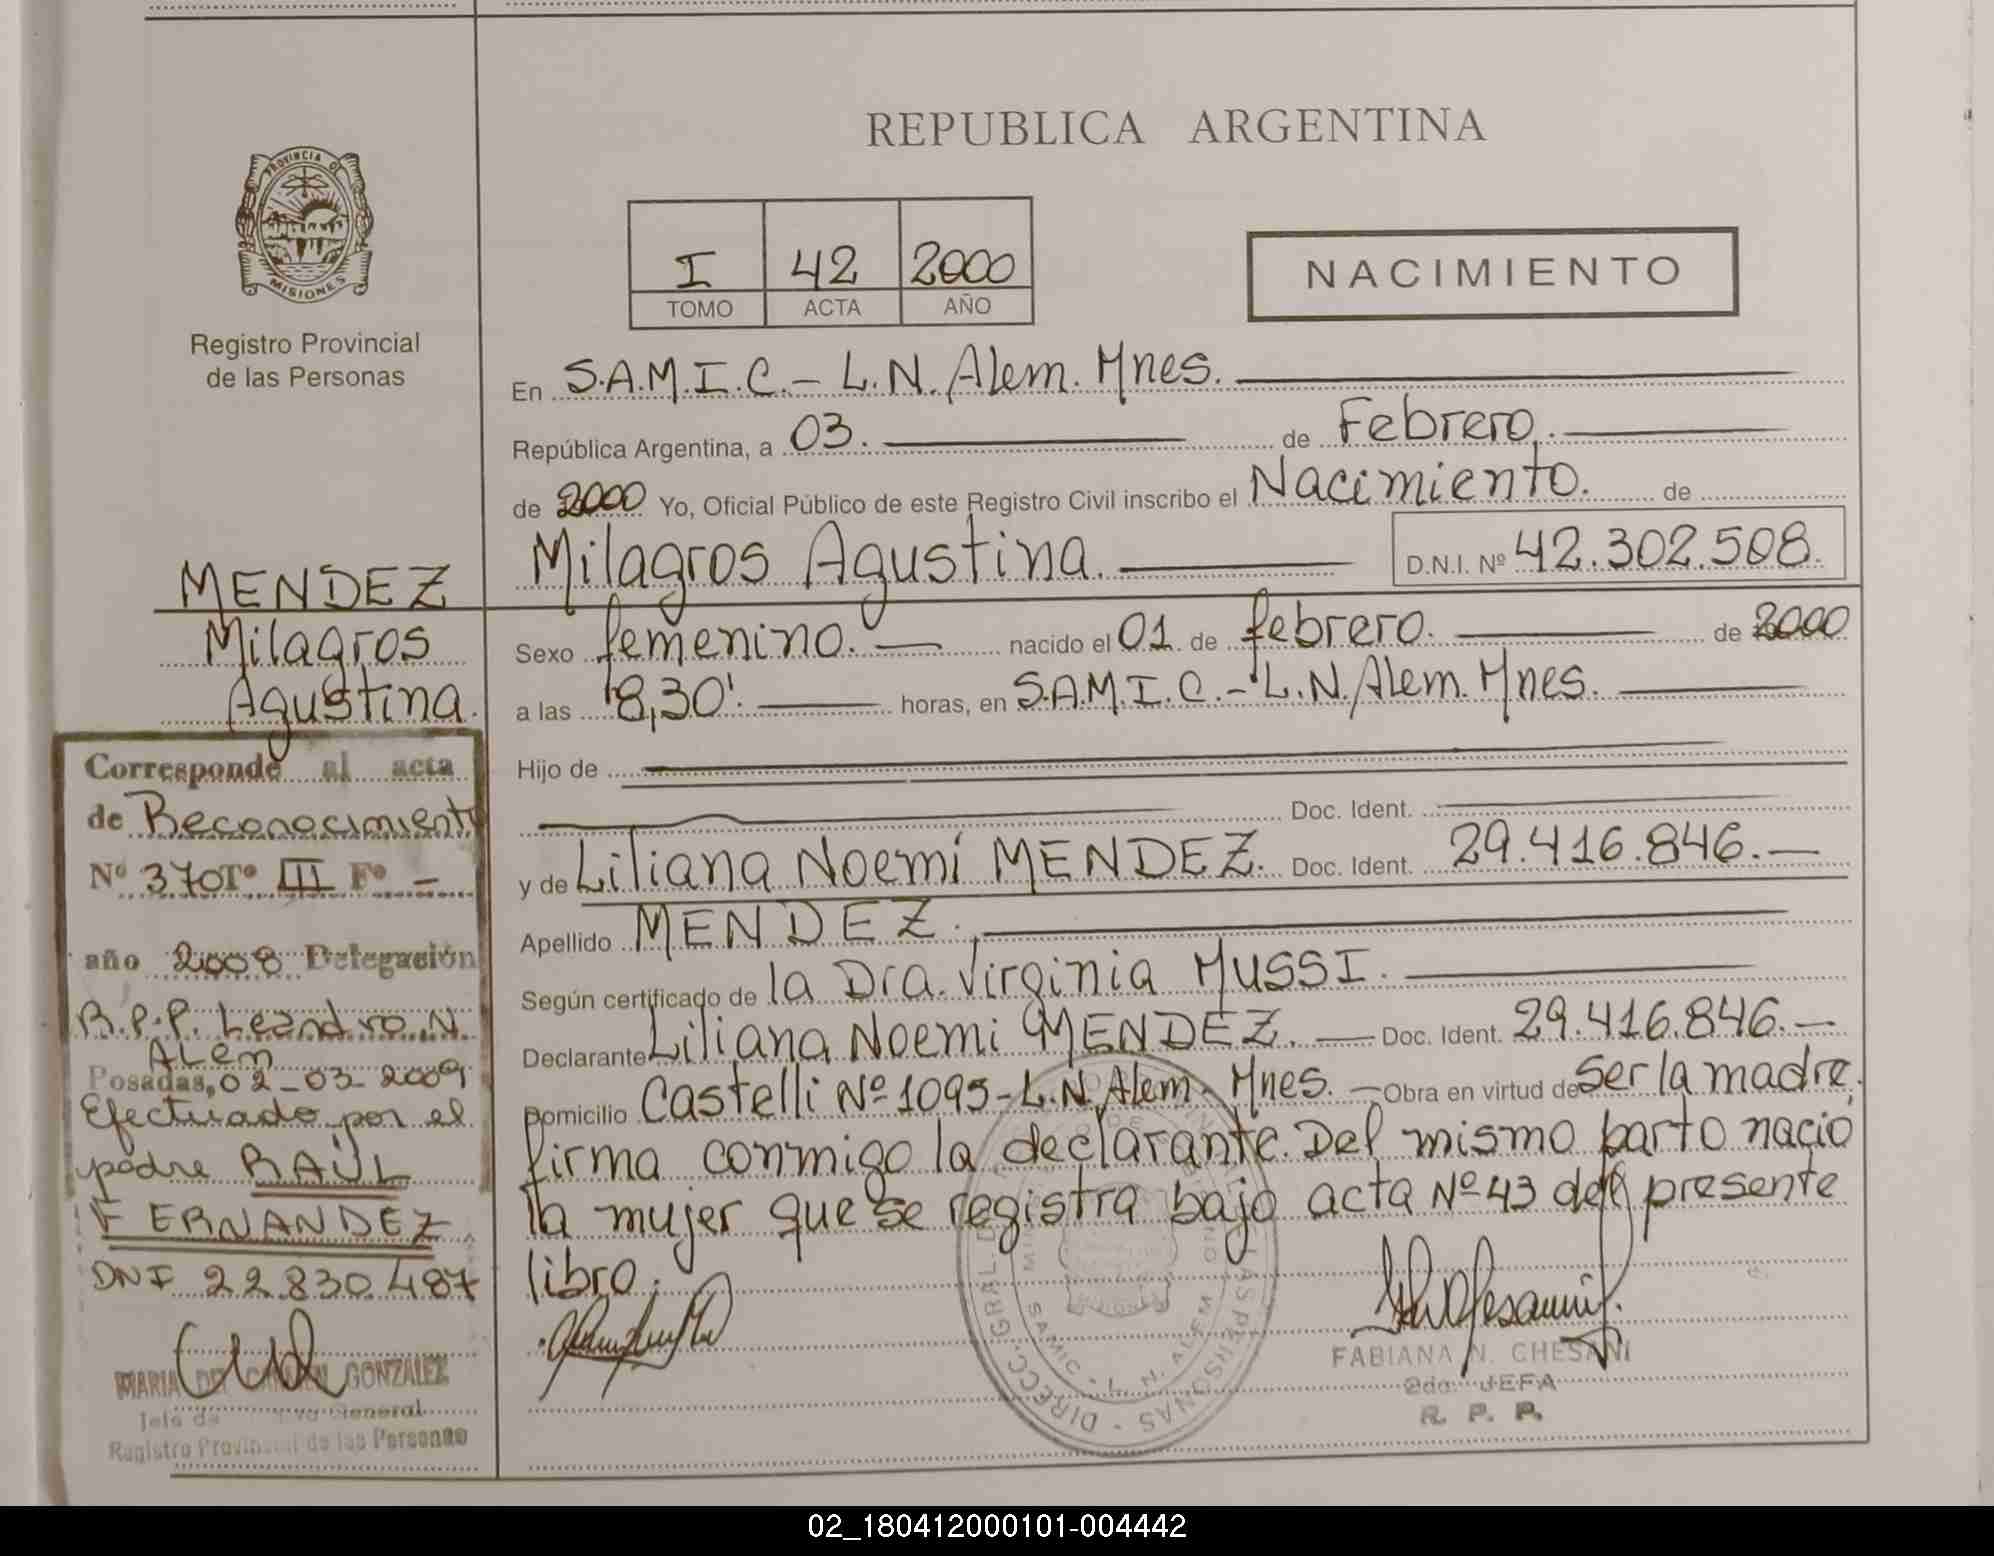 REPUBLICA ARGENTINA
PROVINCIA DE
MISIONES
Registro Provincial
de las Personas
I 42 2000
TOMO ACTA AÑO
NACIMIENTO
En S.A.M.I.C.- L.N. Alem. Mnes.
República Argentina, a 03. de Febrero.
de 2000 Yo, Oficial Público de este Registro Civil inscribo el Nacimiento. de
Milagros Agustina. D.N.I. Nº 42.302.508.
MENDEZ
Milagros
Agustina.
Sexo femenino. nacido el 01. de febrero. de 2000
a las 8,30'. horas, en S.A.M.I.C.- L.N. Alem. Mnes.
Hijo de
Doc. Ident.
y de Liliana Noemí MENDEZ. Doc. Ident. 29.416.846.
Apellido MENDEZ.
Según certificado de la Dra. Virginia MUSSI.
Declarante Liliana Noemi MENDEZ. Doc. Ident. 29.416.846.
Domicilio Castelli Nº 1095-L.N. Alem. Mnes. Obra en virtud de Ser la madre,
firma conmigo la declarante. Del mismo parto nació
la mujer que se registra bajo acta Nº 43 del presente
libro.
Corresponde al acta
de Reconocimiento
Nº 370 Tº III Fº -
año 2008 Delegación
R.P.P. Leandro N.
ALem
Posadas, 02-03-2009
Efectuado por el
padre RAÚL
FERNANDEZ
DNI 22.830.487
MARIA DEL CARMEN GONZALEZ
Registro Provincial de las Personas
SAMIC - L. N. ALEM
FABIANA N. CHESANI
2da. JEFA
R. P. P.
02_180412000101-004442